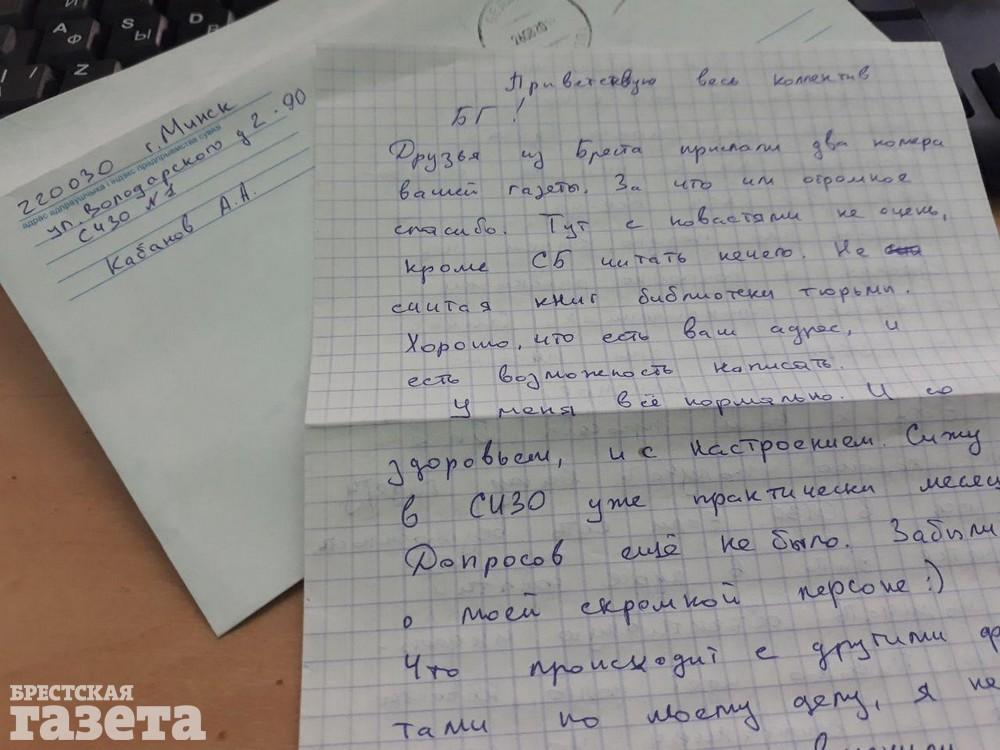 220030 г. Минск
адрас адпраўшчыка і індэкс прадпрыемства сувязі
ул. Володарского д 2. 90
СИЗО № 1
Кабанов А.А.
Приветствую весь коллектив
БГ!
Друзья из Бреста прислали два номера
вашей газеты. За что им огромное
спасибо. Тут с новастями не очень,
кроме СБ читать нечего. Не
считая книг библиотеки тюрьмы.
Хорошо, что есть ваш адрес, и
есть возможность написать.
У меня всё нормально. И со
здоровьем, и с настроением. Сижу
в СИЗО уже практически месяц
Допросов ещё не было. Забыли
о моей скромной персоне :)
Что происходит с другими
тами по моему делу, я не
БРЕСТСКАЯ
газета